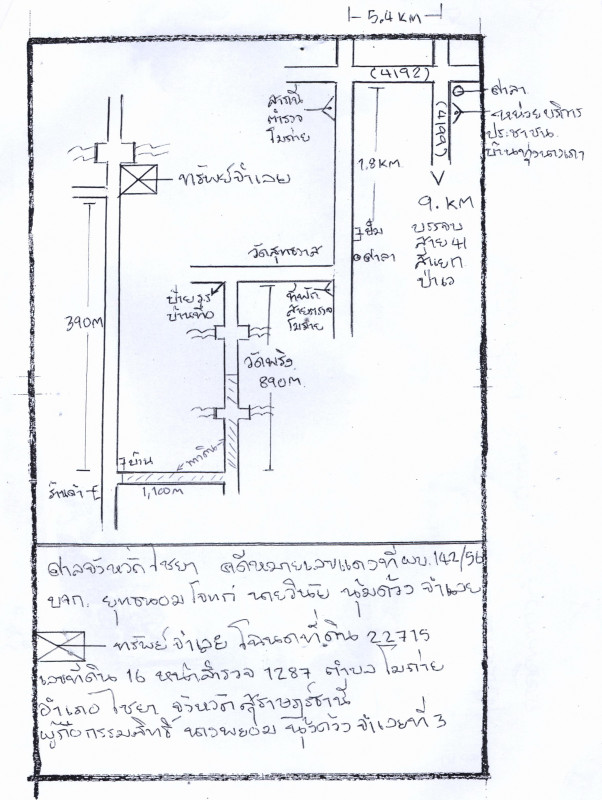 5.4 KM
(4192)
ศาลา
หน่วยบริการ
ประชาชน
บ้านทุ่งนางเภา
สถานี
ตำรวจ
โมถ่าย
(4199)
1.8 KM
ทรัพย์จำเลย
9. KM
บรรจบ
สาย 41
สี่แยก
ปาเว
ปั๊ม
ศาลา
วัดสุทธาวาส
ป้าย
ที่พัก
สายตรวจ
โมถ่าย
390 M
วัดพริง
890 M.
บ้าน
ทางดิน
ร้านค้า
1,100 M
ศาลจังหวัดไชยา คดีหมายเลขแดงที่ ผบ.142/56
บจก. ยุทธนอม โจทก์ นายวินัย นุ้มด้วง จำเลย
ทรัพย์จำเลย โฉนดที่ดิน 22715
เลขที่ดิน 16 หน้าสำรวจ 1287 ตำบลโมถ่าย
อำเภอไชยา จังหวัดสุราษฎร์ธานี
ผู้ถือกรรมสิทธิ์ นางพยอม นุ้ยด้วง จำเลยที่ 3